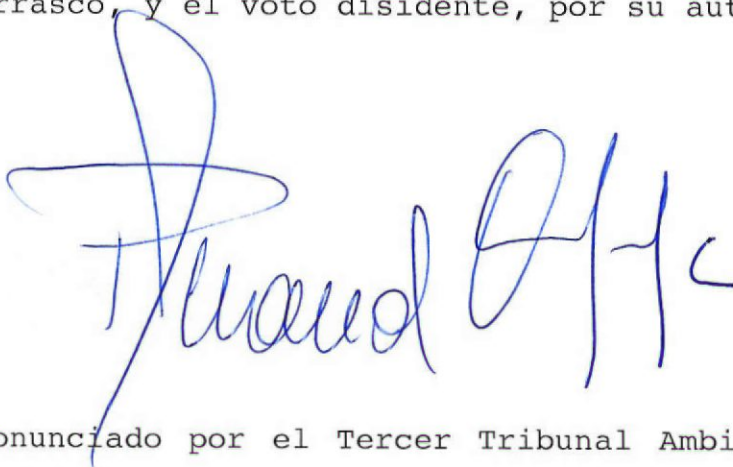 rrasco, y el voto disidente, por su aut
onunciado por el Tercer Tribunal Ambi